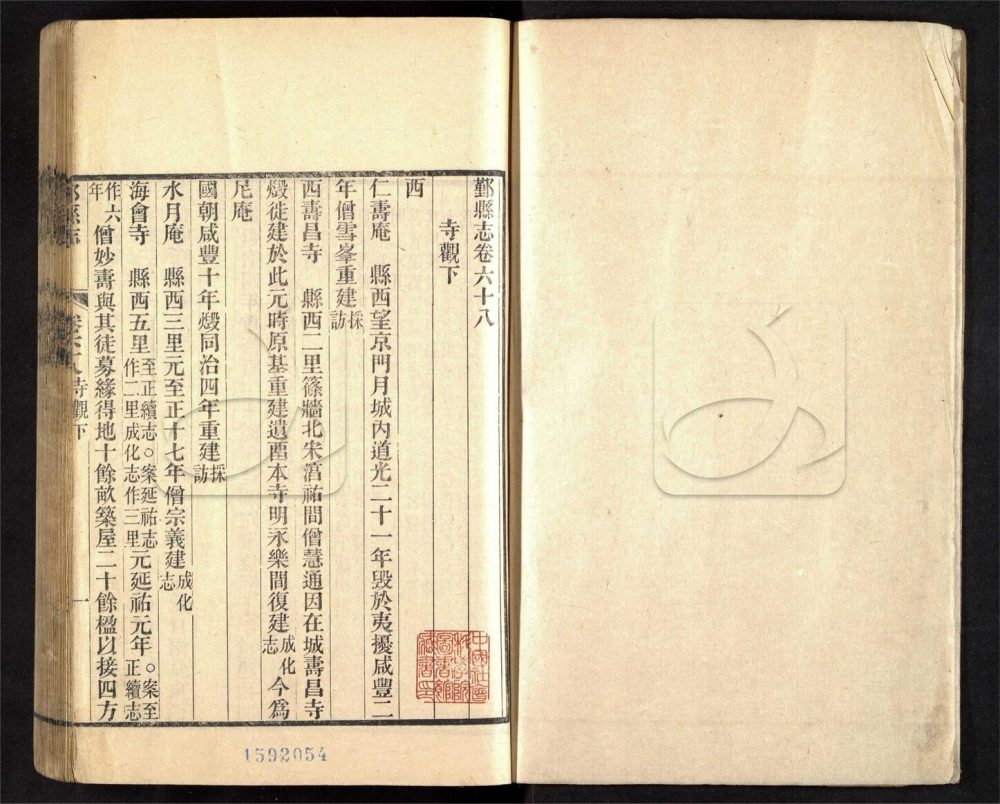 鄞縣志卷六十八
寺觀下
西
仁壽庵　縣西望京門月城內道光二十一年毀於夷擾咸豐二
年僧雪峯重建採訪
西壽昌寺　縣西二里篠牆北宋淳祐間僧慧通因在城壽昌寺
燬徙建於此元時原基重建遺酉本寺明永樂間復建成化志今爲
尼庵
國朝咸豐十年燬同治四年重建採訪
水月庵　縣西三里元至正十七年僧宗義建成化志
海會寺　縣西五里至正續志○案延祐志作二里成化志作三里元延祐元年○案至正續志
作六年僧妙壽與其徒募緣得地十餘畝築屋二十餘楹以接四方
鄞縣志　卷六十八寺觀下　一
中國社會科學院圖書館藏書印
1592054